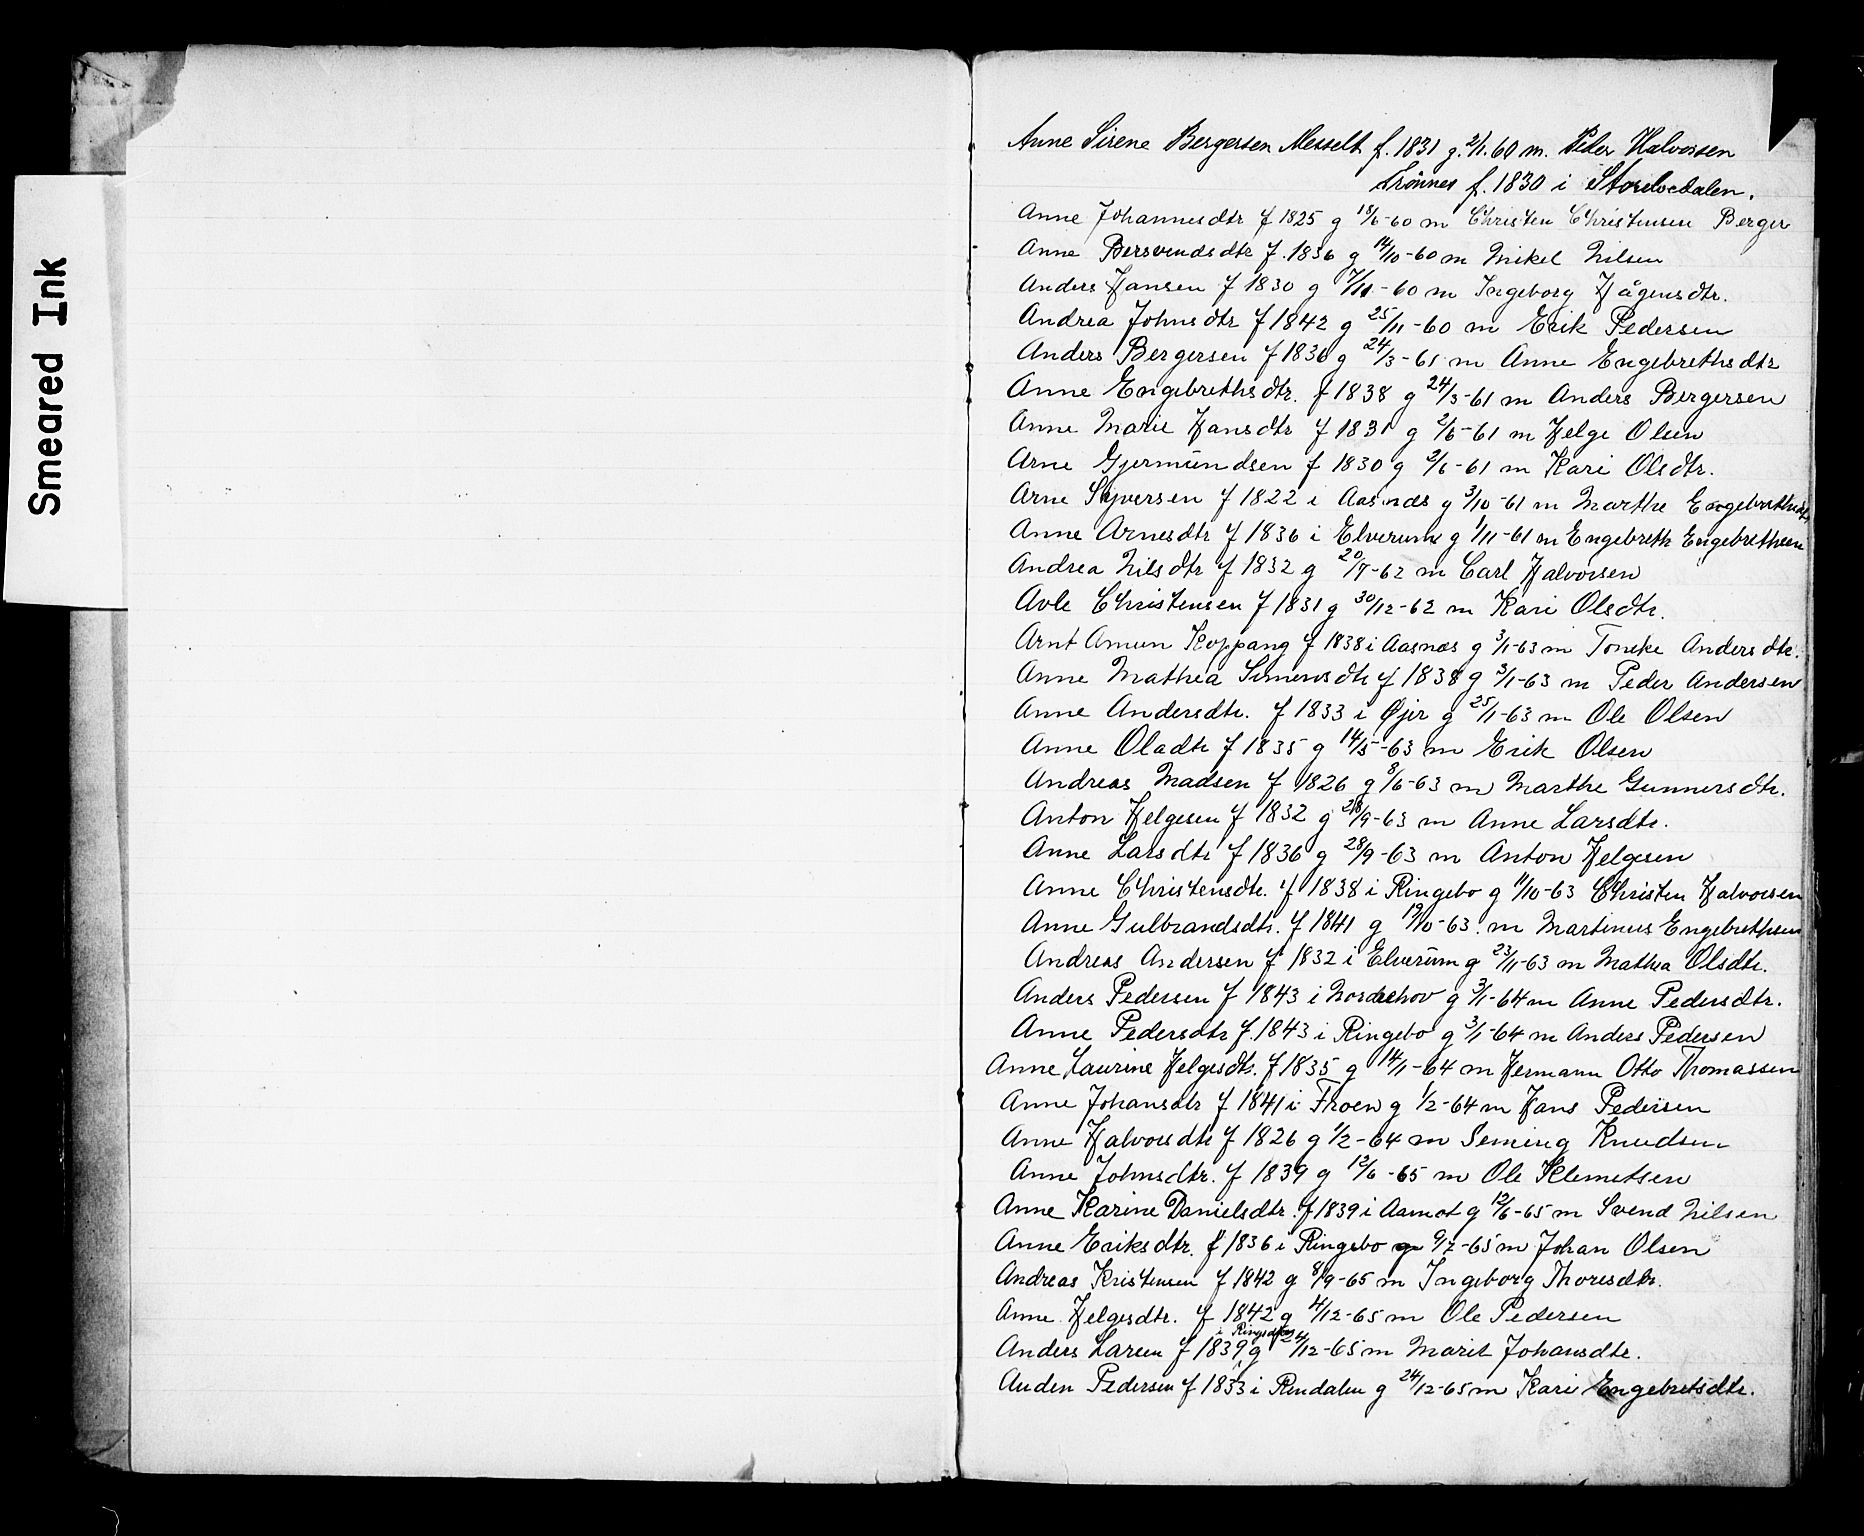 Smeared Ink
Anne Sirene Bergersen Messelt f. 1831 g. 2/1. 60 m. Peder Halvorsen
Trönnes f. 1830 i Storelvedalen.
Anne Johannesdtr f 1825 g 18/6-60 m Christen Christensen Berger
Anne Bersvendsdtr f. 1836 g 14/10-60 m Mikel Nilsen
Anders Hansen f 1830 g 7/11-60 m Ingeborg Hågensdtr.
Andrea Johnsdtr f 1842 g 25/11-60 m Erik Pedersen
Anders Bergersen f 1836 g 24/3-61 m Anne Engebrethsdtr
Anne Engebrethsdtr. f 1838 g 24/3-61 m Anders Bergersen
Anne Marie Hansdtr f 1831 g 2/6-61 m Helge Olsen
Arne Gjermundsen f 1830 g 2/6-61 m Kari Olsdtr.
Arne Syversen f 1822 i Aasnæs g 3/10-61 m Marthe Engebrethsdtr
Anne Arnesdtr f 1836 i Elverum g 1/11-61 m Engebreth Engebrethsen
Andrea Nilsdtr f 1832 g 20/7-62 m Carl Halvorsen
Avle Christensen f 1831 g 30/12-62 m Kari Olsdtr.
Arnt Amun Koppang f 1838 i Aasnæs g 3/1-63 m Toneke Andersdtr.
Anne Mathea Simensdtr f 1838 g 3/1-63 m Peder Andersen
Anne Andersdtr. f 1833 i Øjer g 25/1-63 m Ole Olsen
Anne Oladtr f 1835 g 14/5-63 m Erik Olsen
Andreas Madsen f 1826 g 8/6-63 m Marthe Gunnersdtr.
Anton Helgesen f 1832 g 28/9-63 m Anne Larsdtr.
Anne Larsdtr f 1836 g 28/9-63 m Anton Helgesen
Anne Christensdtr. f 1838 i Ringebo g 11/10-63 Christen Halvorsen
Anne Gulbrandsdtr. f 1841 g 19/10-63. m Martinus Engebrethsen
Andreas Andersen f 1832 i Elverum g 23/11-63 m Mathea Olsdtr.
Anders Pedersen f 1843 i Nordrehov g 3/1-64 m Anne Pedersdtr.
Anne Pedersdtr f. 1843 i Ringebo g 3/1-64 m Anders Pedersen
Anne Laurine Helgesdtr. f 1835 g 14/1-64 m Hermann Otto Thomassen
Anne Johansdtr f 1841 i Froen g 1/2-64 m Hans Pedersen
Anne Halvorsdtr f 1826 g 1/2-64 m Seming Knudsen
Anne Johnsdtr. f 1839 g 12/6-65 m Ole Klemetsen
Anne Karine Danielsdtr. f 1839 i Aamot g 12/6-65 m Svend Nilsen
Anne Eriksdtr. f 1836 i Ringebo g 9/7-65 m Johan Olsen
Andreas Kristensen f 1842 g 8/9-65 m Ingeborg Thoresdtr.
Anne Helgesdtr. f 1842 g 4/12-65 m Ole Pedersen
Anders Larsen f 1839 g 24/12-65 m Marit Johansdtr.
Auden Pedersen f 1833 i Rendalen g 24/12-65 m Kari Engebretsdtr.